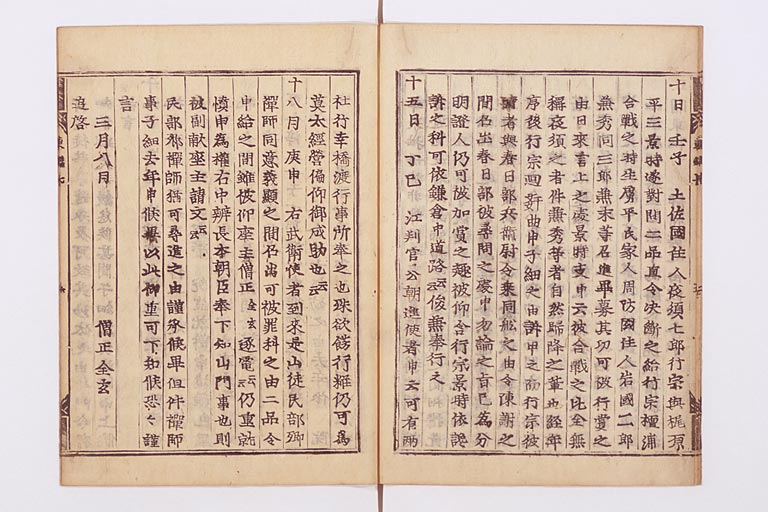 十日 壬子 土佐國住人夜須七郎行宗與梶原
平三景時遂對問二品直令決斷之給行宗壇浦
合戰之時生虜平氏家人周防國住人岩國二郎
兼秀同三郎兼末等召進畢募其功可被行賞之
由日來言上之處景時支申云彼合戰之比全無
稱夜須之者件兼秀等者自然歸降之輩也經年
序後行宗廻奸曲申子細之由訴申之而行宗彼
時者與春日部兵衛尉令乘同舩之由令陳謝之
間召出春日部被尋問之處申勿論之旨已爲分
明證人仍可被加賞之趣被仰含行宗景時依讒
訴之科可作鎌倉中道路云云俊兼奉行之
十五日 丁巳 江判官公朝進使者申云可有兩
社行幸橋渡行事所奉之也殊欲餝行粧仍可爲
莫太經營偏仰御成助也云云
十八日 庚申 右武衛使者到來是山徒民部卿
禪師同意義顯之間召出可被罪科之由二品令
申給之間雖被仰座主僧正全玄逐電云云仍重就
憤申爲權右中辨長本朝臣奉下知山門事也則
被副献座主請文云云
民部卿禪師猶可尋進之由謹承候畢但件禪師
事子細去年申候畢以此仰重可下知候恐々謹
言
三月八日 僧正全玄
追啓